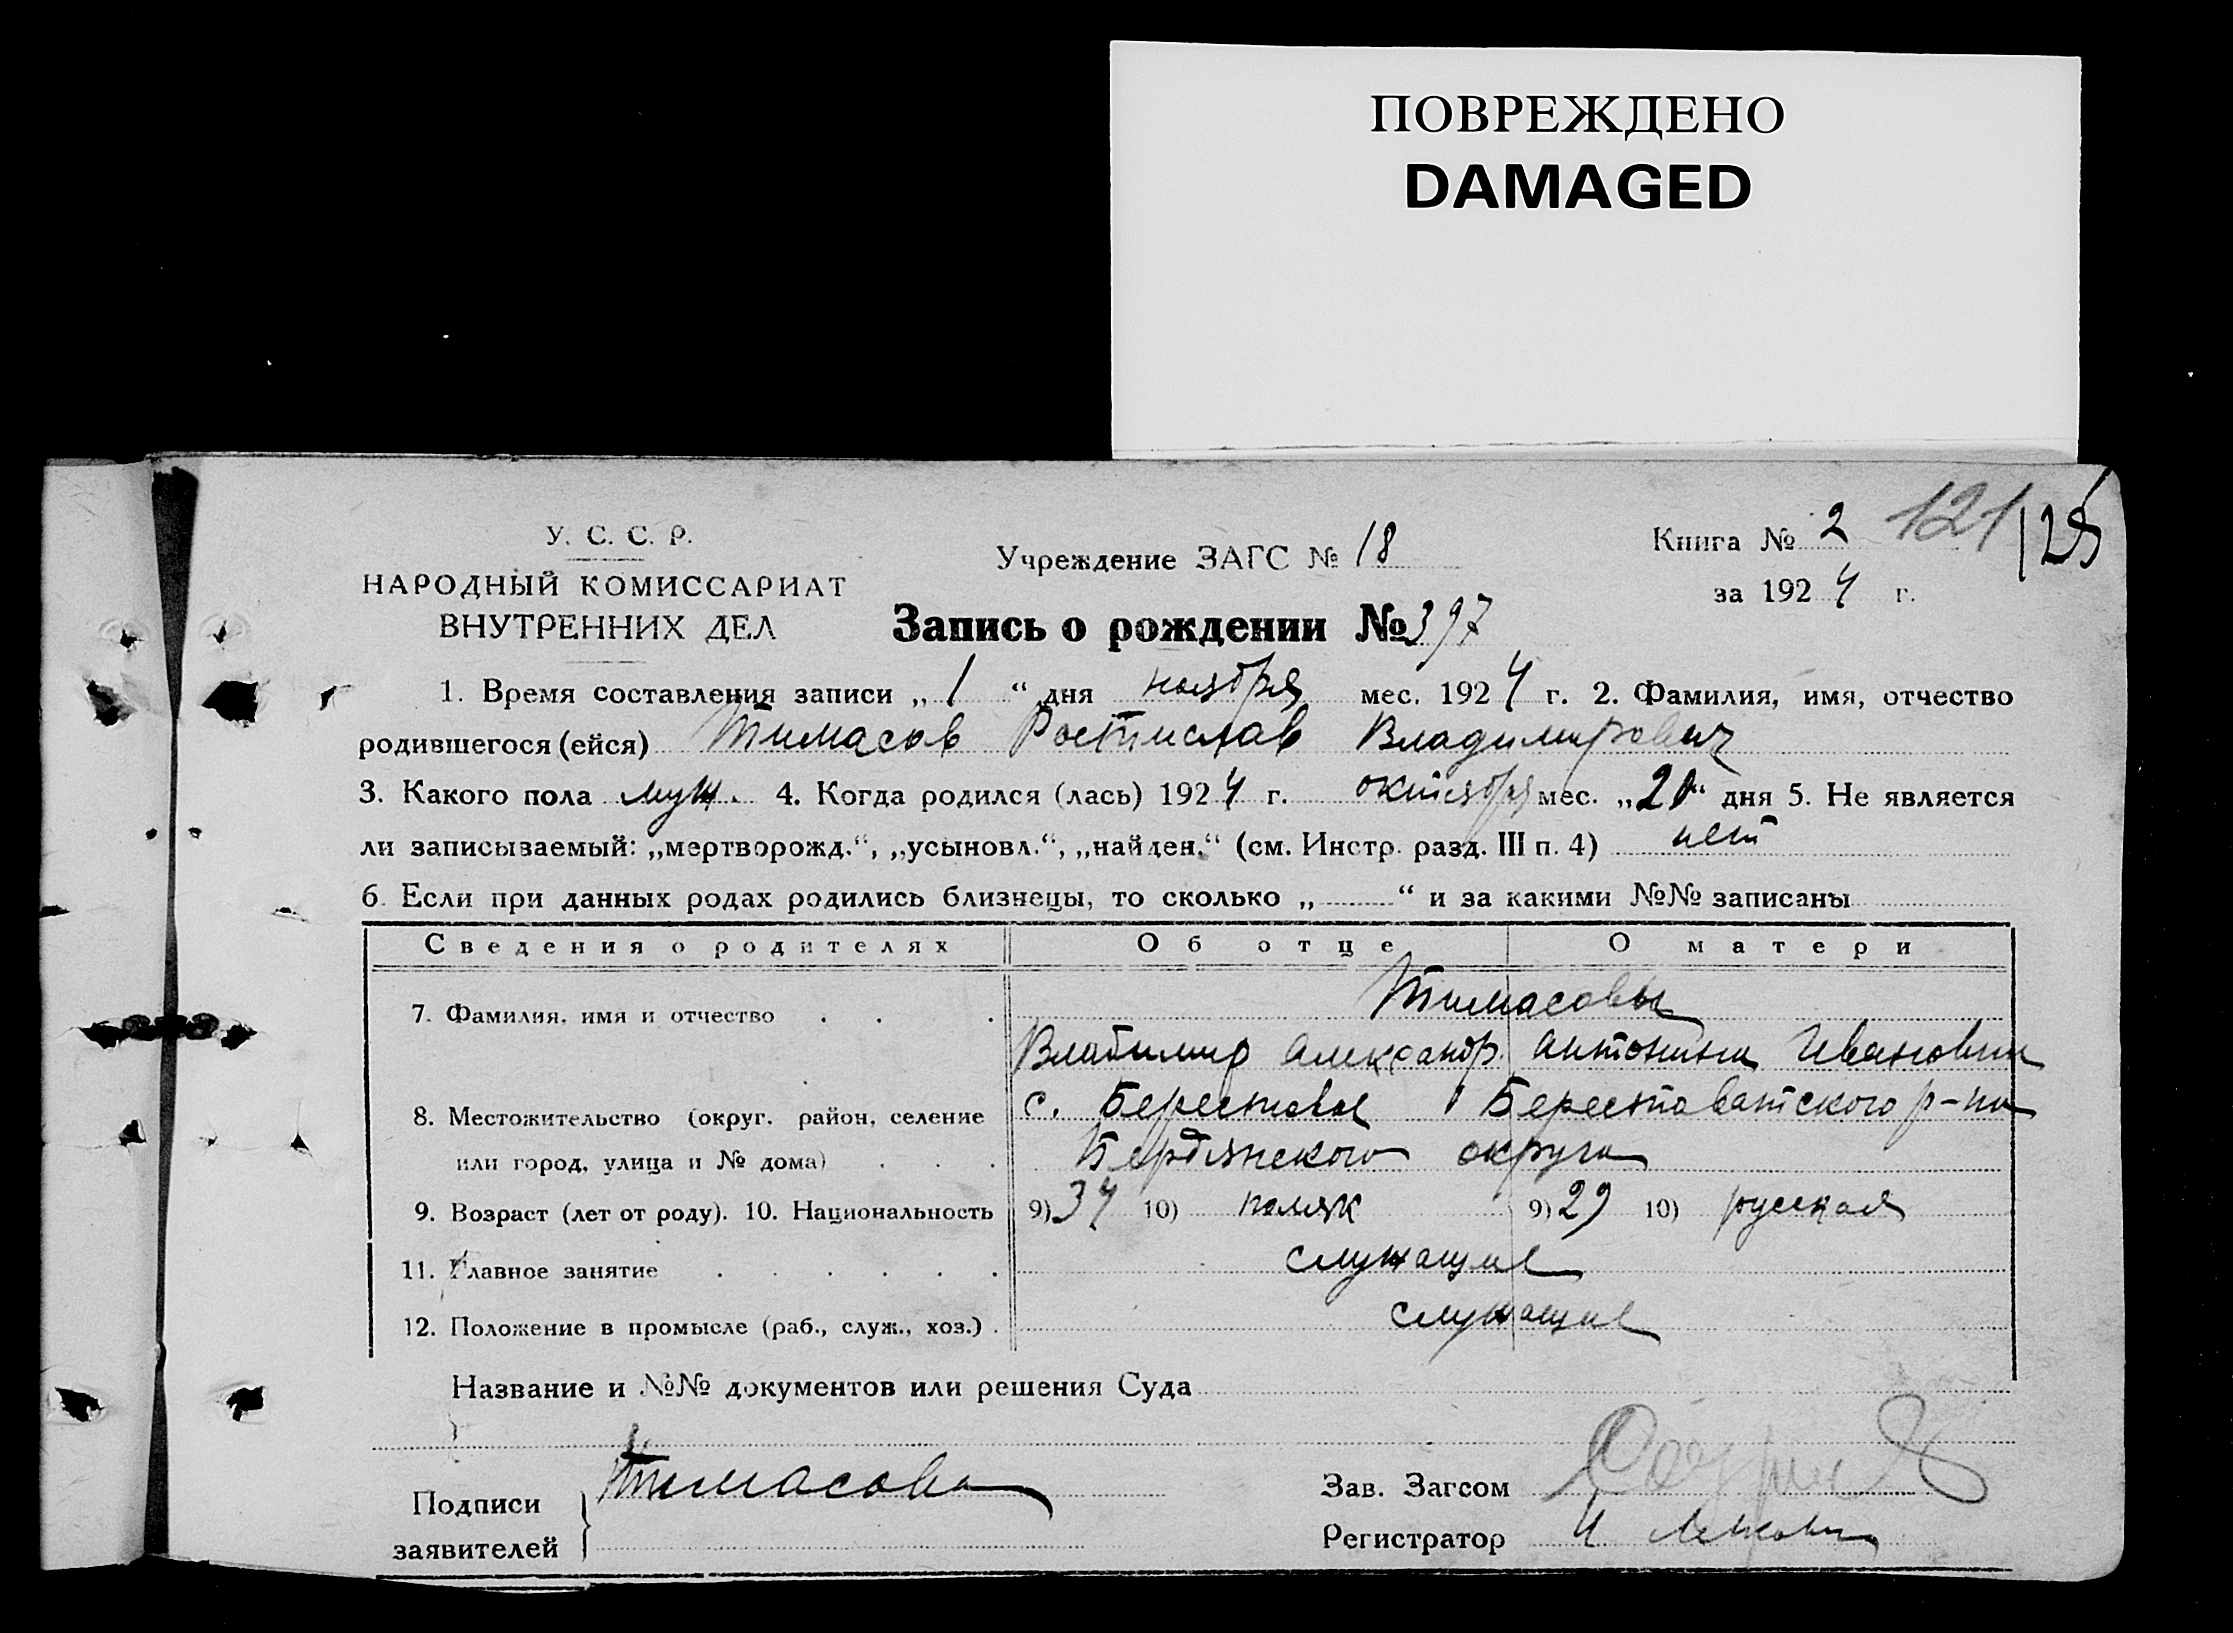 ПОВРЕЖДЕНО
DAMAGED
У. С. С. Р.
НАРОДНЫЙ КОМИССАРИАТ
ВНУТРЕННИХ ДЕЛ
Учреждение ЗАГС № 18
Книга № 2 121 125
за 1924 г.
Запись о рождении № 397
1. Время составления записи „ 1 “ дня ноября мес. 1924 г. 2. Фамилия, имя, отчество
родившегося (ейся) Тимасов Ростислав Владимирович
3. Какого пола муж. 4. Когда родился (лась) 1924 г. октября мес. „ “ дня 5. Не является
ли записываемый: „мертворожд.“, „усыновл.“, „найден.“ (см. Инстр. разд. III п. 4) нет
6. Если при данных родах родились близнецы, то сколько „ “ и за какими №№ записаны
Сведения о родителях Об отце О матери
7. Фамилия, имя и отчество Тимасовы
Владимир Александр. Антонина Ивановна
8. Местожительство (округ, район, селение с. Берестовое Берестоватского р-на
или город, улица и № дома) Бердянского округа
9. Возраст (лет от роду). 10. Национальность 9) 34 10) поляк 9) 29 10) русская
11. Главное занятие служащие
12. Положение в промысле (раб., служ., хоз.) служащие
Название и №№ документов или решения Суда
Подписи заявителей Тимасова
Зав. Загсом
Регистратор